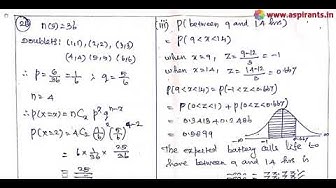 www.aspirants.in
(2) n(s) = 36
Doublets: (1,1), (2,2), (3,3)
(4,4) (5,5) (6,6)
∴ p = 6/36 = 1/6 ; q = 5/6
n = 4
p(x=x) = nCx p^x q^n-x
p(x=2) = 4C2 (1/6)² (5/6)²
= 6 × 1/36 × 25/36
= 25
(iii) P(between 9 and 14 hrs)
= P(9<x<14)
when x=9, z = 9-12/3 = -1
when x=14, z = 14-12/3 = 0.667
P(9<x<14) = P(-1<z<0.667)
= P(0<z<1) + P(0<z<0.667)
= 0.3413 + 0.2486
= 0.5899
The expected battery cells life to
have between 9 and 14 hrs is